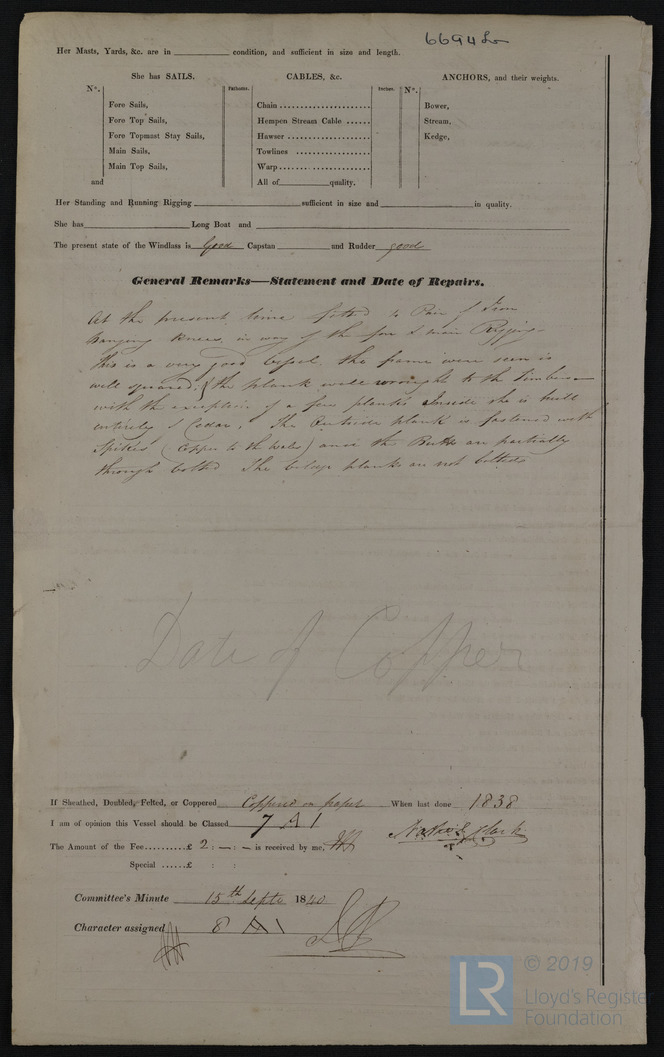 6694 Ln
Her Masts, Yards, &c. are in condition, and sufficient in size and length.
She has SAILS. CABLES, &c. ANCHORS, and their weights.
N°. Inches. Inches. N°.
Fore Sails, Chain Bower,
Fore Top Sails, Hempen Stream Cable Stream,
Fore Topmast Stay Sails, Hawser Kedge,
Main Sails, Towlines
Main Top Sails, Warp
and All of quality.
Her Standing and Running Rigging sufficient in size and in quality.
She has Long Boat and
The present state of the Windlass is Good Capstan and Rudder good
General Remarks—Statement and Date of Repairs.
At the present time fitted Pair of Iron
hanging Knees in way of the fore & main Rigging
this is a very good Vessel. the frame were seen is
well squared, & the plank well wrought to the timbers
with the exception of a few planks Inside she is built
entirely of Cedar. The Outside plank is fastened with
Spikes (Copper to the wales) and the Butts are partially
through bolted The bilge planks are not bolted
Date of Copper
If Sheathed, Doubled, Felted, or Coppered Coppered on paper When last done 1838
I am of opinion this Vessel should be Classed 7 A 1
The Amount of the Fee...........£ 2 : — : — is received by me,
Special ......£ : :
Committee's Minute 15th Septr 1840
Character assigned 8 A 1
LR © 2019
Lloyd's Register
Foundation